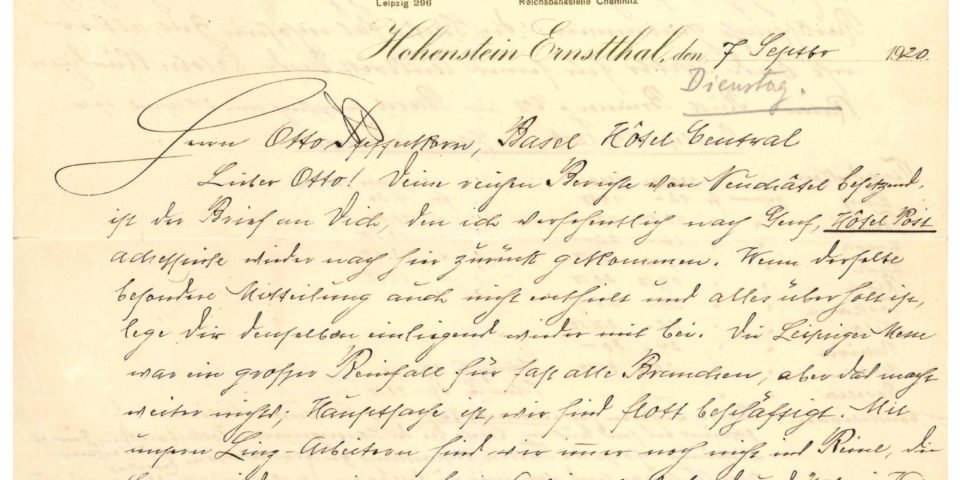 Leipzig 296 Reichsbankstelle Chemnitz
Hohenstein-Ernstthal, den 7 Septbr 1920.
Dienstag.
Herrn Otto Pfefferkorn, Basel Hôtel Central
Lieber Otto! Deine reichen Berichte von Neuchâtel besitzend,
ist der Brief an Dich, den ich versehentlich nach Genf, Hôtel Post
adressirte wieder nach hier zurück gekommen. Wenn derselbe
besondere Mitteilung auch nicht enthielt und alles überholt ist,
lege Dir denselben einliegend wieder mit bei. Die Leipziger Messe
war ein großer Reinfall für fast alle Branchen, aber das macht
weiter nichts; Hauptsache ist, wir sind flott beschäftigt. Mit
unsern Linz-Arbeitern sind wir immer noch nicht ins Reine, die